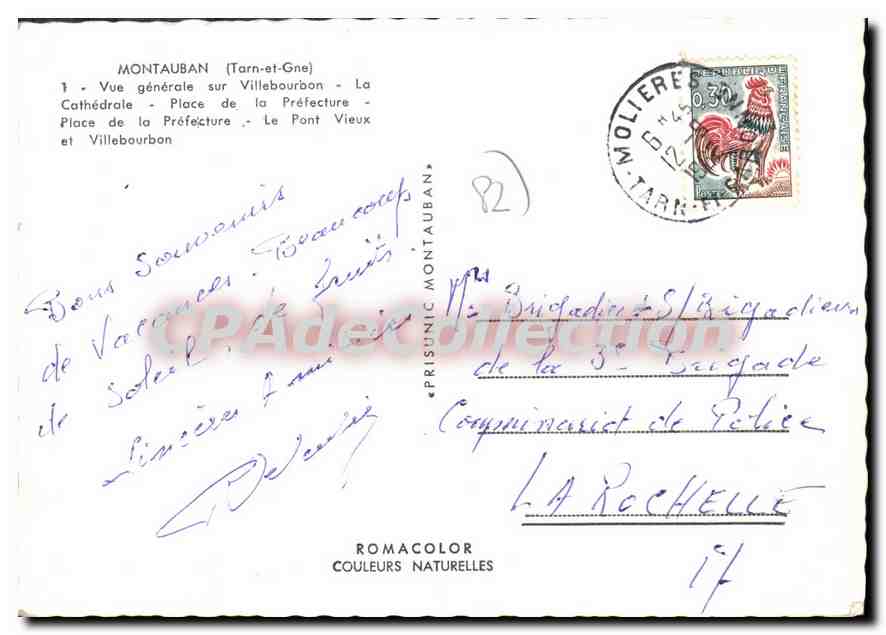 MONTAUBAN (Tarn-et-Gne)
1 - Vue générale sur Villebourbon - La
Cathédrale - Place de la Préfecture -
Place de la Préfecture - Le Pont Vieux
et Villebourbon
REPUBLIQUE FRANÇAISE
0,30
MOLIERES
6 H 45
12
TARN-
82
Bons Souvenirs
de Vacances. Beaucoup
de Soleil, de Fruits.
Sincères Amitiés
«PRISUNIC MONTAUBAN»
Mrs Brigadier S/Brigadiers
de la 3e Brigade
Commissariat de Police
LA ROCHELLE
17
CPAdeCollection
ROMACOLOR
COULEURS NATURELLES